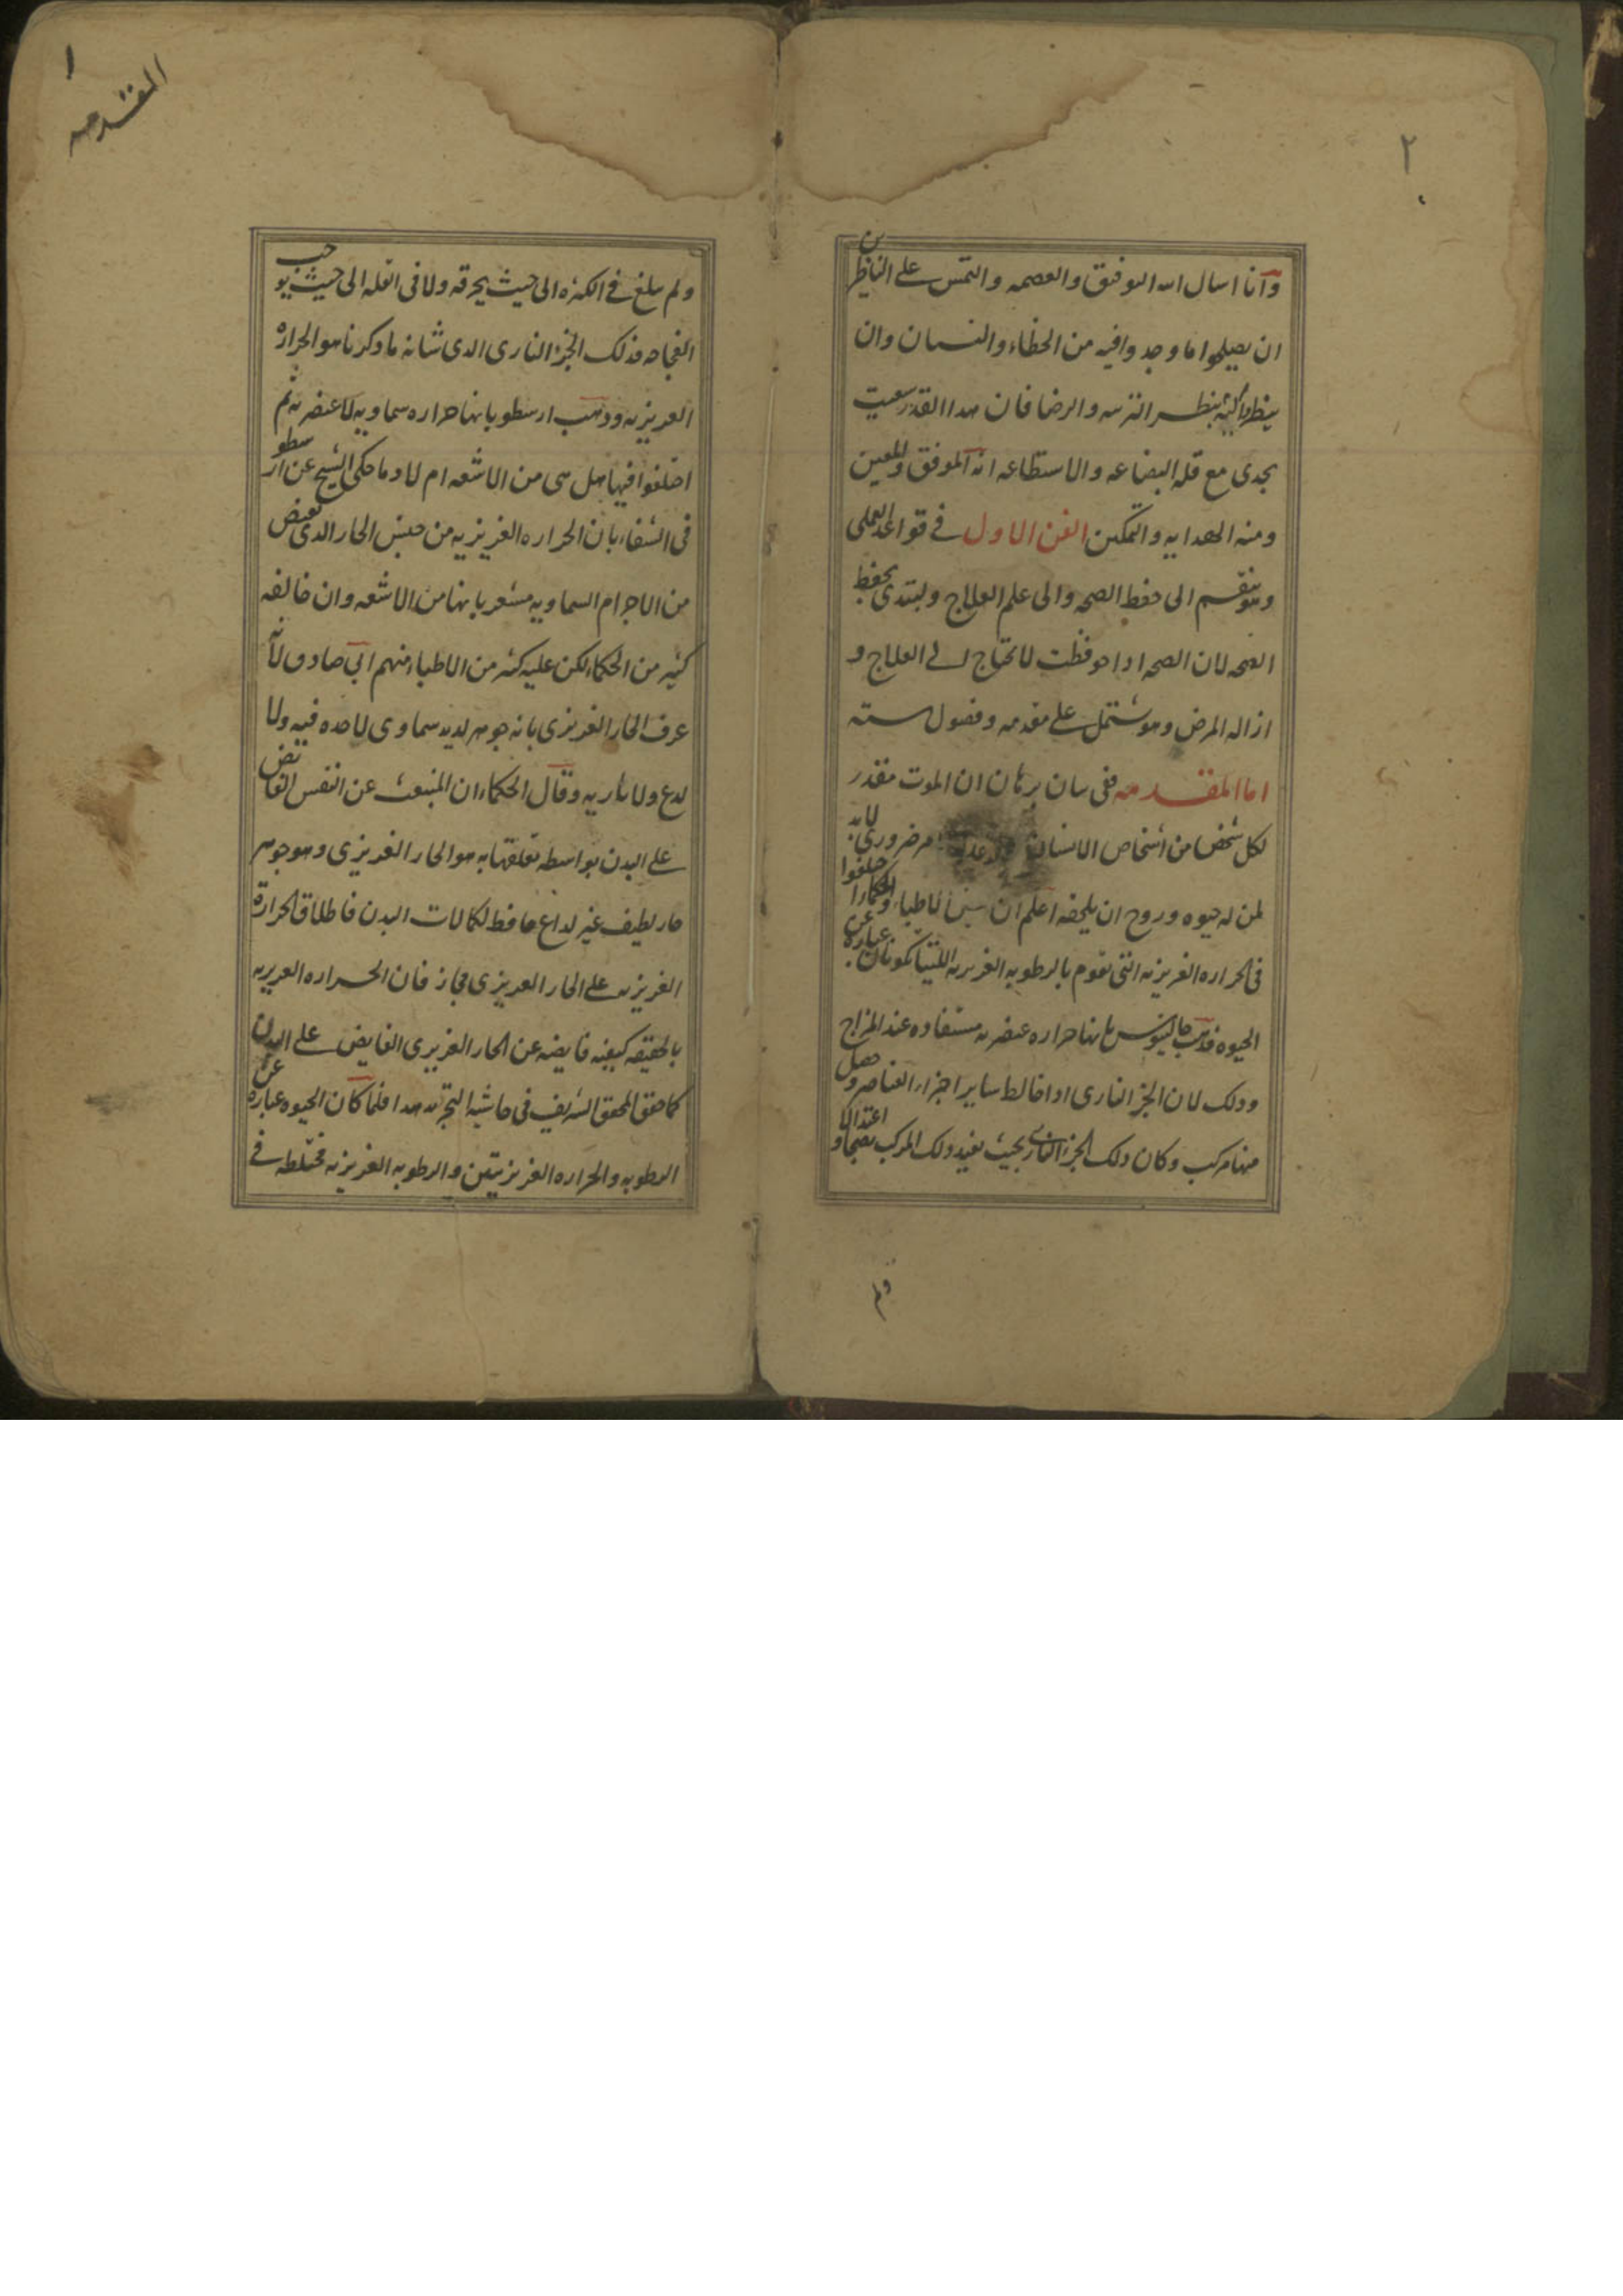 ٢
وانا اسال الله التوفيق والعصمه والتمس على الناظرين
ان يصلحوا ما وجدوا فيه من الخطاء والنسيان وان
ينظروا اليه بنظر التربيه والرضا فان هذا القدر
يجدى مع قله البضاعه والاستطاعه انه الموفق والمعين
ومنه الهدايه والتمكين الفن الاول فى قواعد العملى
وهو ينقسم الى حفظ الصحه والى علم العلاج ولبتدى بحفظ
الصحه لان الصحه اذا حوفظت لا تحتاج الى العلاج و
ازاله المرض وهو مشتمل على مقدمه وفصول سته
اما المقدمه ففى بيان برهان ان الموت مقدر
لكل شخص من اشخاص الانسان ضرورى لابد
لمن له حيوه وروح ان يلحقه اعلم ان بين الاطباء والحكماء اختلفوا
فى الحراره الغريزيه التى تقوم بالرطوبه الغريزيه اللتين تكونان عباره عن
الحيوه فذهب جالينوس بانها حراره عنصريه مستفاده عند المزاج
وذلك لان الجزء النارى اذا خالط ساير اجزاء العناصر وحصل
منها مركب وكان ذلك الجزء النارى بحيث يفيد ذلك المركب نضجا و اعتدالا
ولم
١
المقدمه
ولم يبلغ فى الكثره الى حيث يحرقه ولا فى القله الى حيث يوجب
الفجاجه فذلك الجزء النارى الذى شانه ما ذكرنا هو الحرارة
الغريزيه وذهب ارسطو بانها حراره سماويه لا عنصريه ثم
اختلفوا فيها هل هى من الاشعه ام لا وما حكى الشيخ عن ارسطو
فى الشفاء بان الحراره الغريزيه من جنس الحار الذى يفيض
من الاجرام السماويه مشعر بانها من الاشعه وان خالفه
كثير من الحكماء لكن عليه كثير من الاطباء منهم ابى صادق لانه
عرف الحار الغريزى بانه جوهر لذيذ سماوى لا حده فيه ولا
لدع ولا ناريه وقال الحكماء ان المنبعث عن النفس الفائض
على البدن بواسطه تعلقها به هو الحار الغريزى وهو جوهر
حار لطيف غير لداع حافظ لكمالات البدن فاطلاق الحرارة
الغريزيه على الحار الغريزى مجاز فان الحراره الغريزيه
بالحقيقه كيفيه فايضه عن الحار الغريزى الفايض على البدن
كما حقق المحقق الشريف فى حاشيه التجريد هذا فلما كان الحيوه عباره عن
الرطوبه والحراره الغريزيتين والرطوبه الغريزيه مختلطه فى